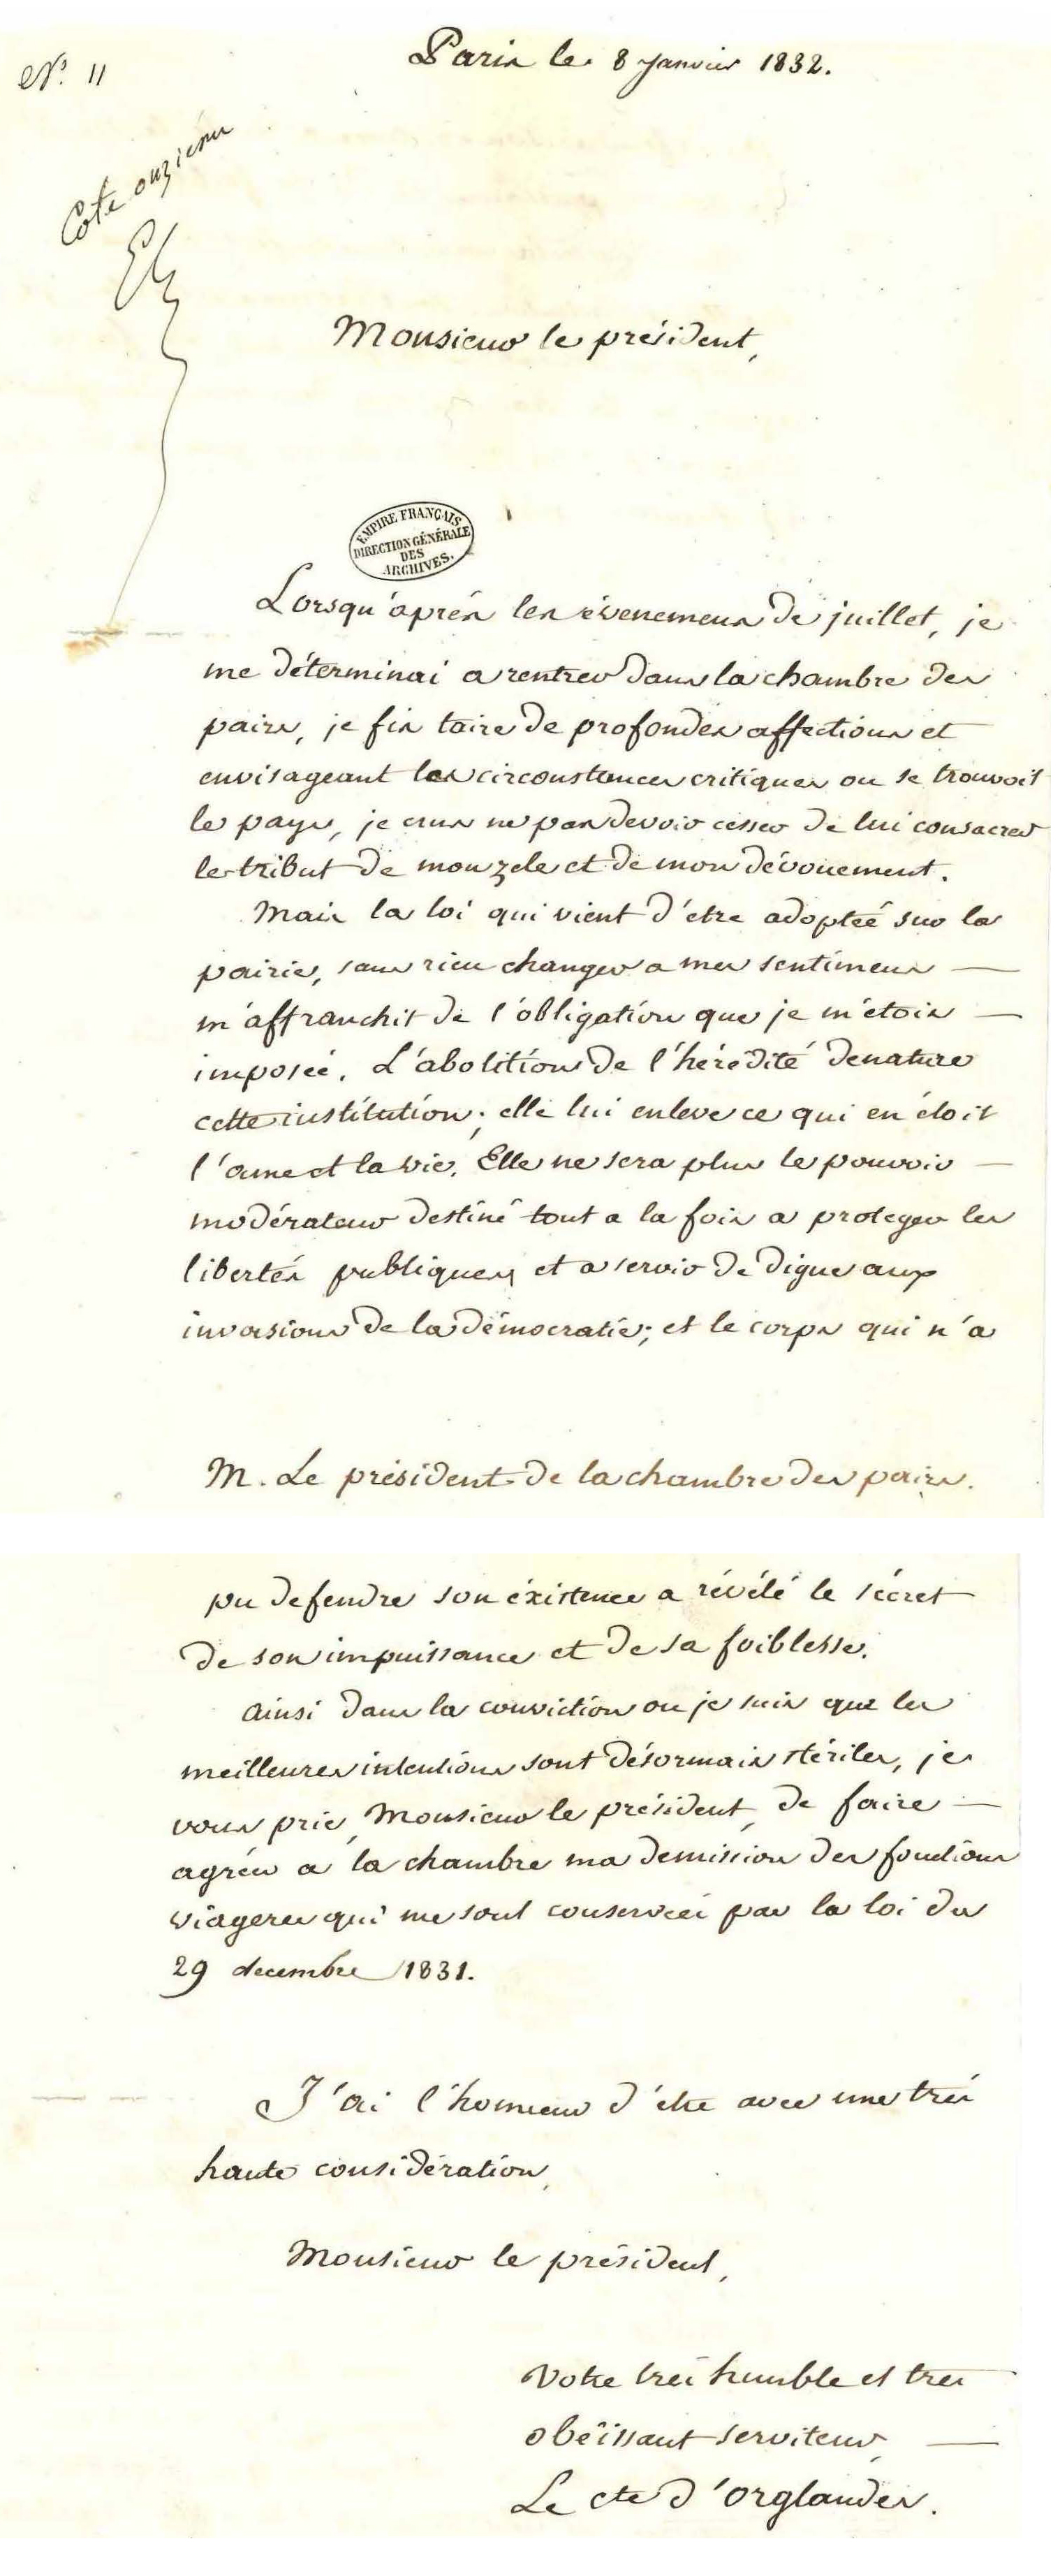 N.° 11
Paris le 8 janvier 1832.
Cote onzieme
Monsieur le président,
EMPIRE FRANÇAIS
DIRECTION GÉNÉRALE
DES
ARCHIVES.
Lorsqu'après les évenemens de juillet, je
me déterminai a rentrer dans la chambre des
pairs, je fis taire de profondes affections et
envisageant les circonstances critiques ou se trouvoit
le pays, je crus ne pas devoir cesser de lui consacrer
le tribut de mon zele et de mon dévouement.
Mais la loi qui vient d'etre adoptée sur la
pairie, sans rien changer a mes sentimens —
m'affranchit de l'obligation que je m'étois —
imposée. L'abolition de l'hérédité denature
cette institution; elle lui enleve ce qui en étoit
l'ame et la vie. Elle ne sera plus le pouvoir —
modérateur destiné tout a la fois a proteger les
libertés publiques, et a servir de digue aux
invasions de la démocratie; et le corps qui n'a
M. Le président de la chambre des pairs.
pu defendre son éxistence a révélé le sécret
de son impuissance et de sa foiblesse.
Ainsi dans la conviction ou je suis que les
meilleures intentions sont désormais stériles, je
vous prie, Monsieur le président, de faire —
agréer a la chambre ma demission des fonctions
viageres qui me sont conservées par la loi du
29 decembre 1831.
J'ai l'honneur d'etre avec une très
haute considération,
Monsieur le président,
Votre très humble et très
obéissant serviteur, —
Le cte d'Orglandes.